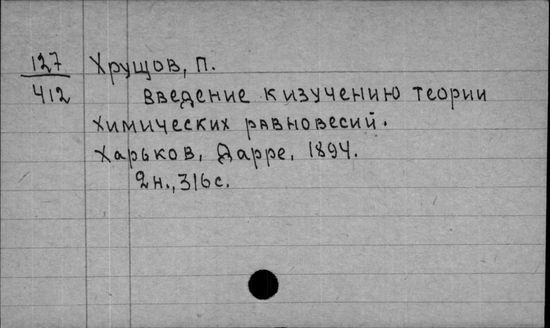 127 Хрущов, П.
412 введение к изучению теории
химических равновесий.
Харьков, Дарре, 1894.
2н., 316 с.